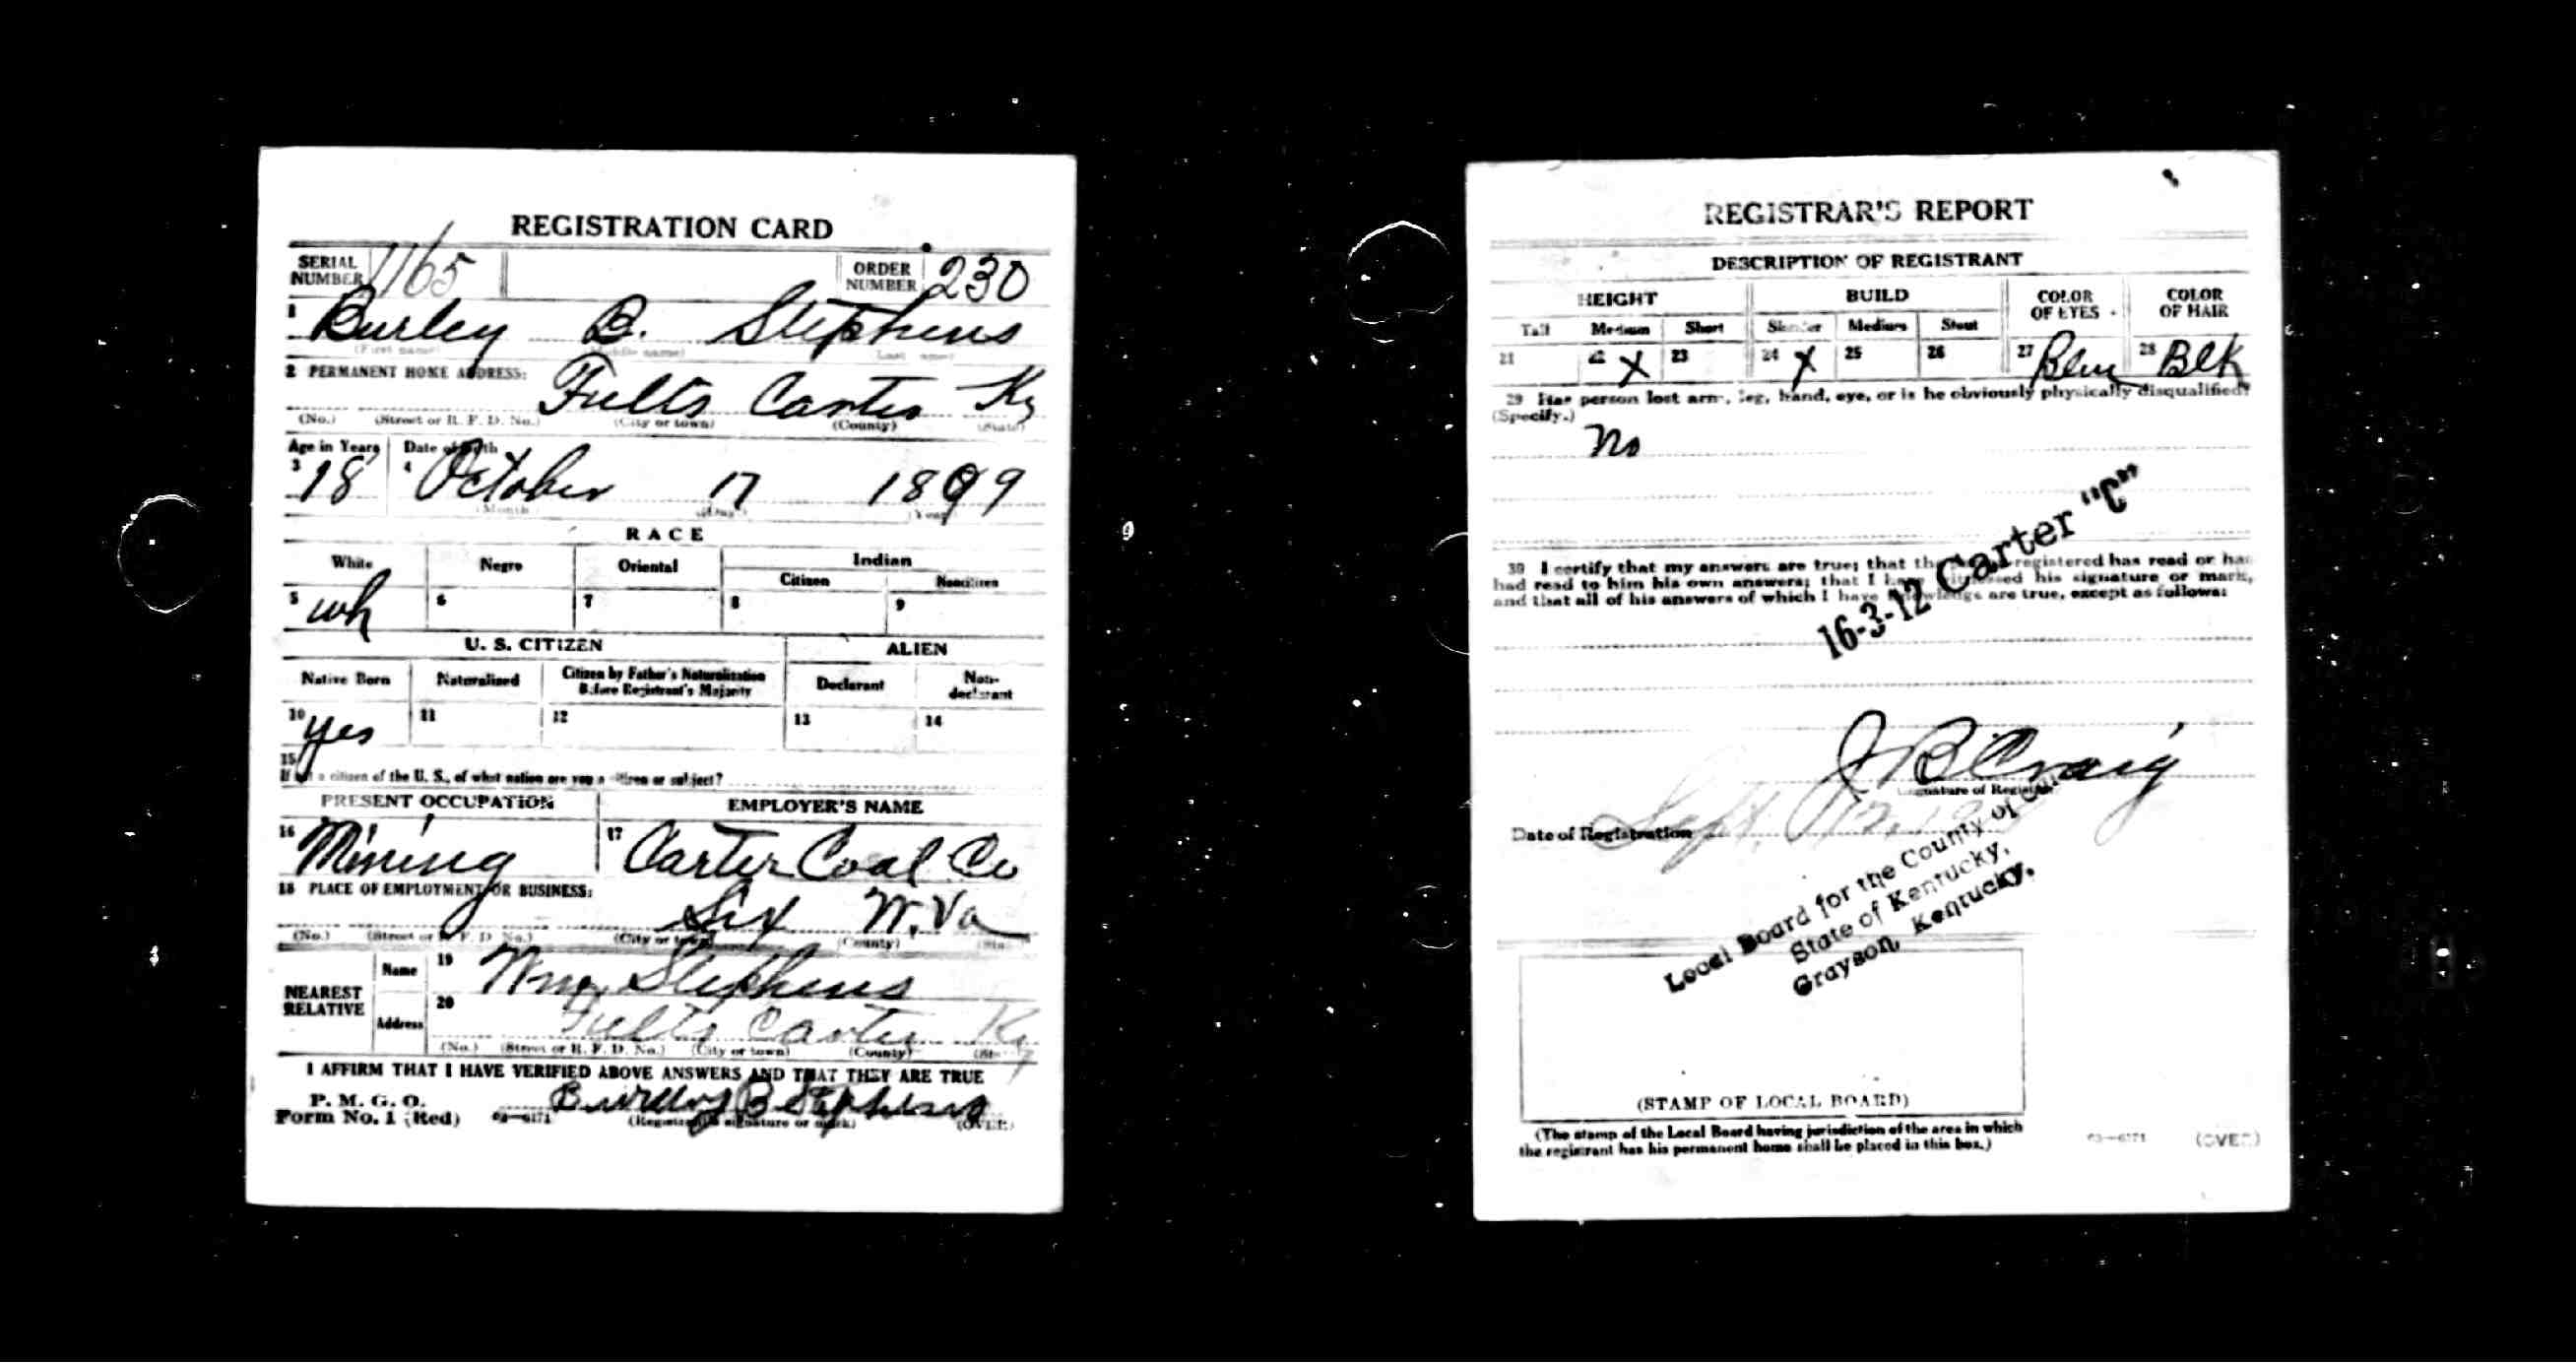 REGISTRATION CARD
SERIAL NUMBER 1165 ORDER NUMBER 230
1 Burley B. Stephens
(First name) (Middle name) (Last name)
2 PERMANENT HOME ADDRESS: Fults Carter Ky
(No.) (Street or R. F. D. No.) (City or town) (County) (State)
Age in Years Date of Birth
3 18 4 October 17 1899
(Month) (Day) (Year)
RACE
White Negro Oriental Indian
Citizen Noncitizen
5 wh 6 7 8 9
U. S. CITIZEN ALIEN
Native Born Naturalized Citizen by Father's Naturalization Before Registrant's Majority Declarant Non-declarant
10 yes 11 12 13 14
15
If not a citizen of the U. S., of what nation are you a citizen or subject?
PRESENT OCCUPATION EMPLOYER'S NAME
16 Mining 17 Carter Coal Co
18 PLACE OF EMPLOYMENT OR BUSINESS:
Six W. Va
(No.) (Street or R. F. D. No.) (City or town) (County) (State)
NEAREST RELATIVE Name 19 Wm Stephens
Address 20 Fults Carter Ky
(No.) (Street or R. F. D. No.) (City or town) (County) (State)
I AFFIRM THAT I HAVE VERIFIED ABOVE ANSWERS AND THAT THEY ARE TRUE
P. M. G. O.
Form No. 1 (Red) 03—6171 B Stephens
(Registrant's signature or mark) (OVER)
REGISTRAR'S REPORT
DESCRIPTION OF REGISTRANT
HEIGHT BUILD COLOR OF EYES COLOR OF HAIR
Tall Medium Short Slender Medium Stout
21 22 X 23 24 X 25 26 27 Blue 28 Blk
29 Has person lost arm, leg, hand, eye, or is he obviously physically disqualified?
(Specify.)
No
16-3-12 Carter "C"
30 I certify that my answers are true; that the person registered has read or has
had read to him his own answers; that I have witnessed his signature or mark,
and that all of his answers of which I have knowledge are true, except as follows:
J B Craig
(Signature of Registrar)
Date of Registration Sept. 12, 19
Local Board for the County of
State of Kentucky,
Grayson, Kentucky.
(STAMP OF LOCAL BOARD)
(The stamp of the Local Board having jurisdiction of the area in which
the registrant has his permanent home shall be placed in this box.)
03—6171 (OVER)